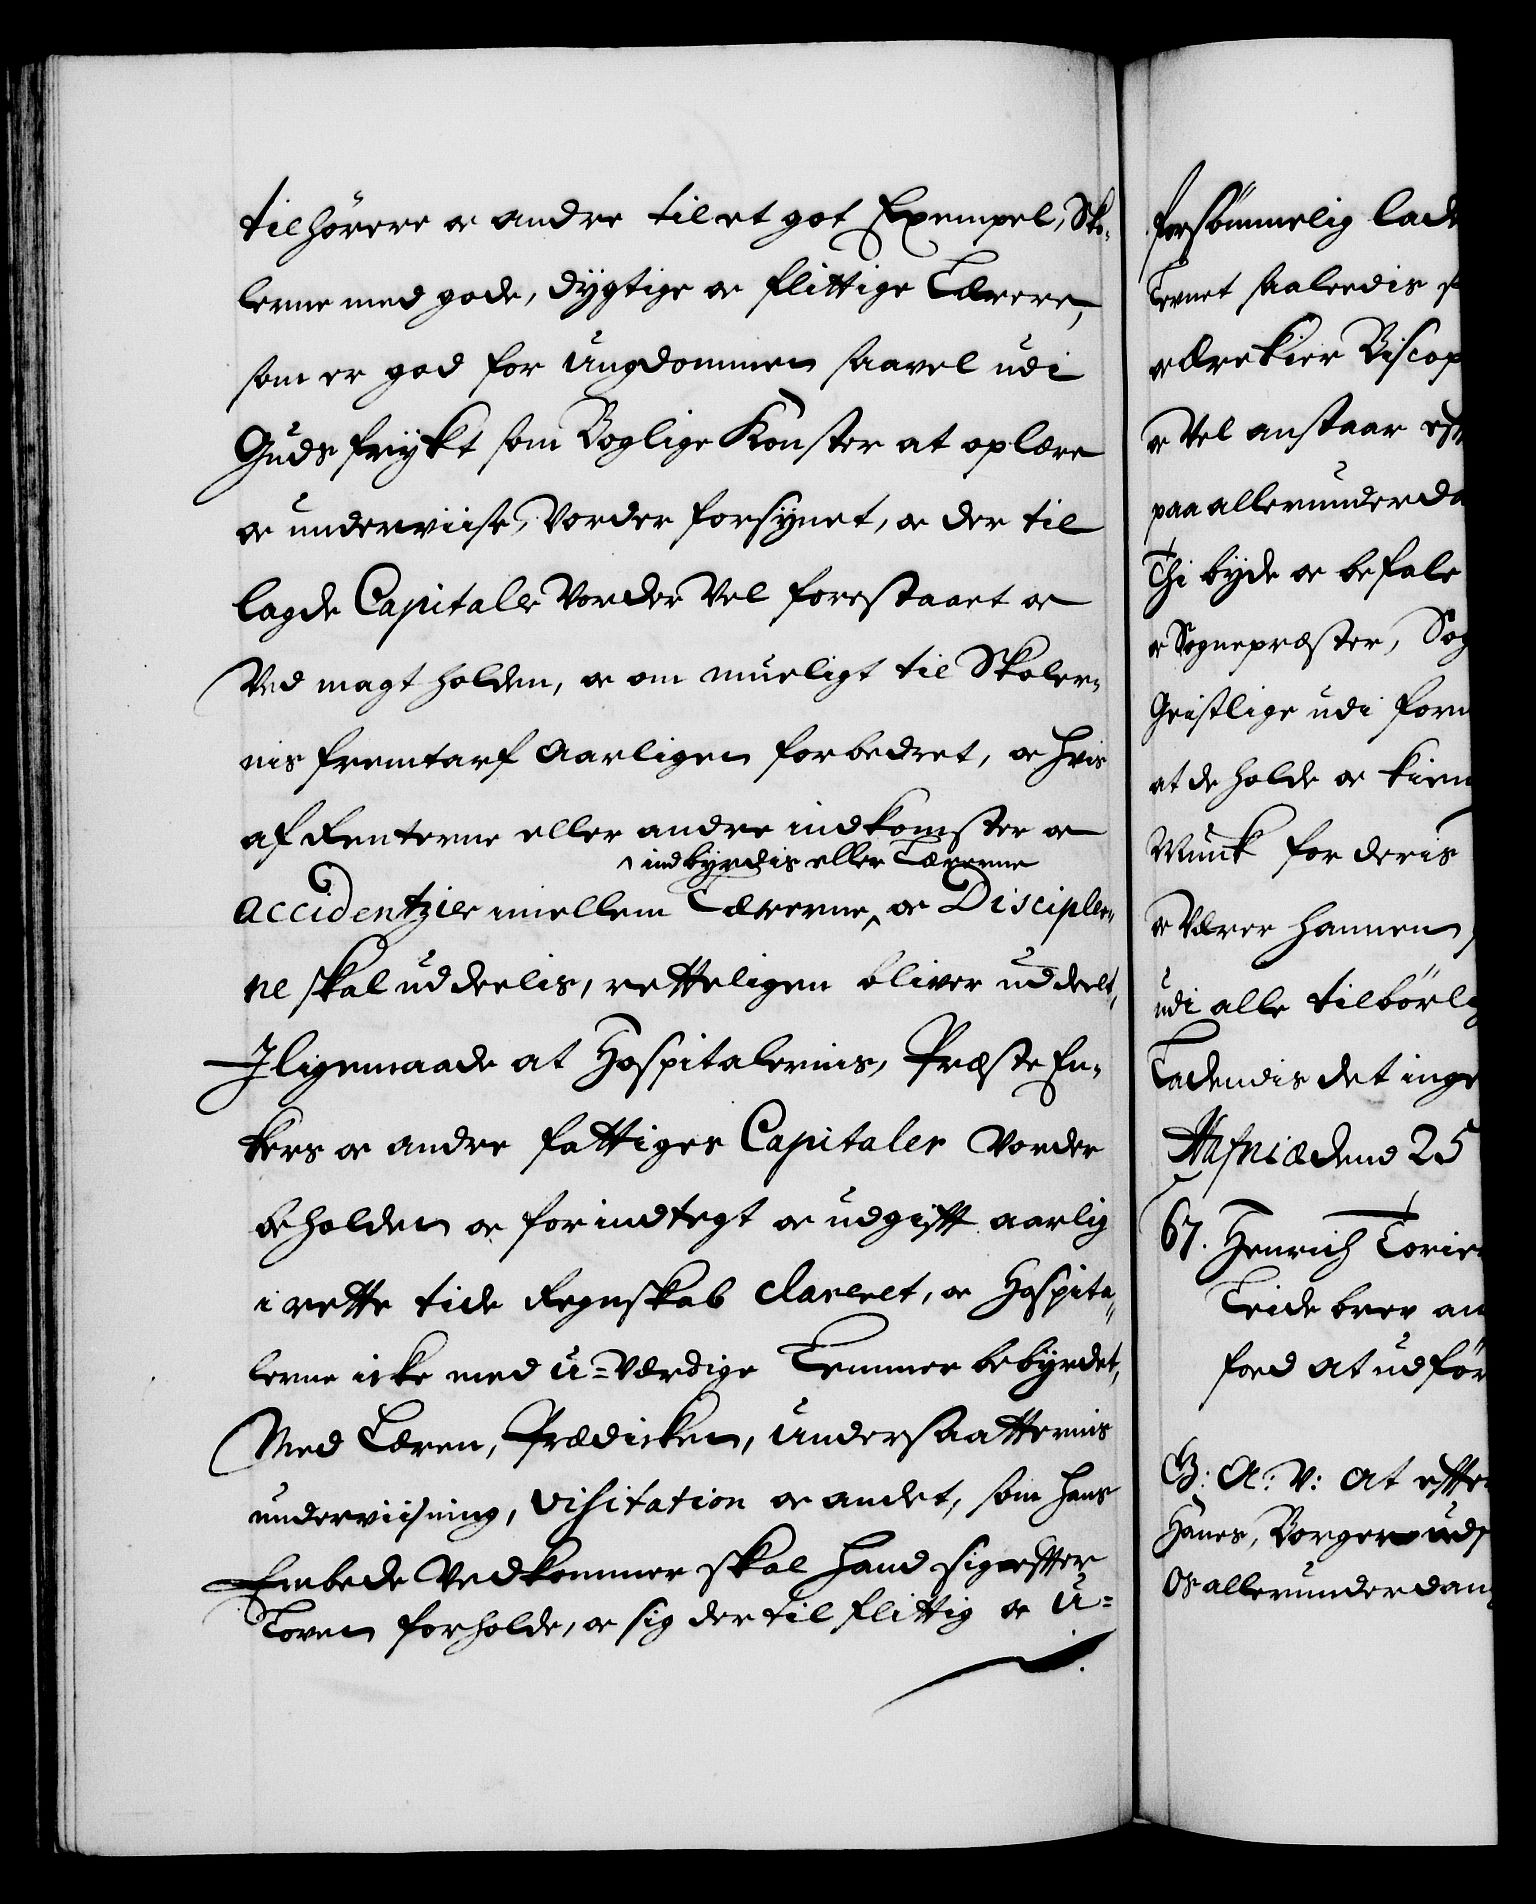 tilhörere oc andre til et got Exempel, Sko-
lerne med gode, dygtige oc flittige Lærere,
som er god for Ungdommen saavel udi
Guds frykt som Boglige Konster at oplære
oc underviise, Vorder forsynet, oc der til
lagde Capitaler Vorder Vel forestaaet oc
Ved magt holden, oc om mueligt til Skoler-
nis fremtarf Aarligen forbedret, oc hvis
af Renterne eller andre indkomster oc
indbyrdis eller Lærerne
Accidentzier imellem Lærerne, oc Discipler-
ne skal uddeelis, retteligen bliver uddeelt,
Iligemaade at Hospitalernis, Præste En-
kers oc andre fattiges Capitaler Vorder
beholden oc for indtegt oc udgifft aarlig
i rette tide Regnskab clareret, oc Hospita-
lerne icke med U-værdige Lemmer bebyrdet,
Med Læren, Prædicken, Undersaatternis
underviisning, Visitation oc andet, som hans
Embede Vedkommer skal hand sig efftter
Loven forholde, oc sig der til flittig oc U-
forsømmelig lade
Lernet saaledis
ærekier Biscop
oc Vel anstaar eff
paa allerunderda
Thi byde oc befale
oc Sognepræster, Sog
Geistlige udi forn
at de holde oc kien
Munk for deris
oc Værer hannem
udi alle tilbørlig
Ladendis det inge
Hafniæ dend 25
67. Henrich
Leide brev an
foed at udfør
G: A: V: At effte
Hanes, Borger udi
Os allerunderdan